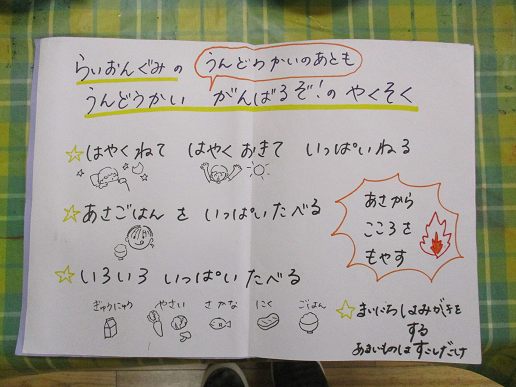 らいおんぐみの
うんどうかいのあとも
うんどうかい がんばるぞ!の やくそく
はやくねて はやくおきて いっぱいねる
あさごはんを いっぱいたべる
いろいろ いっぱいたべる
ぎゅうにゅう やさい さかな にく ごはん
あさから
こころを
もやす
まいにちはみがきを
する
あまいものは すこしだけ